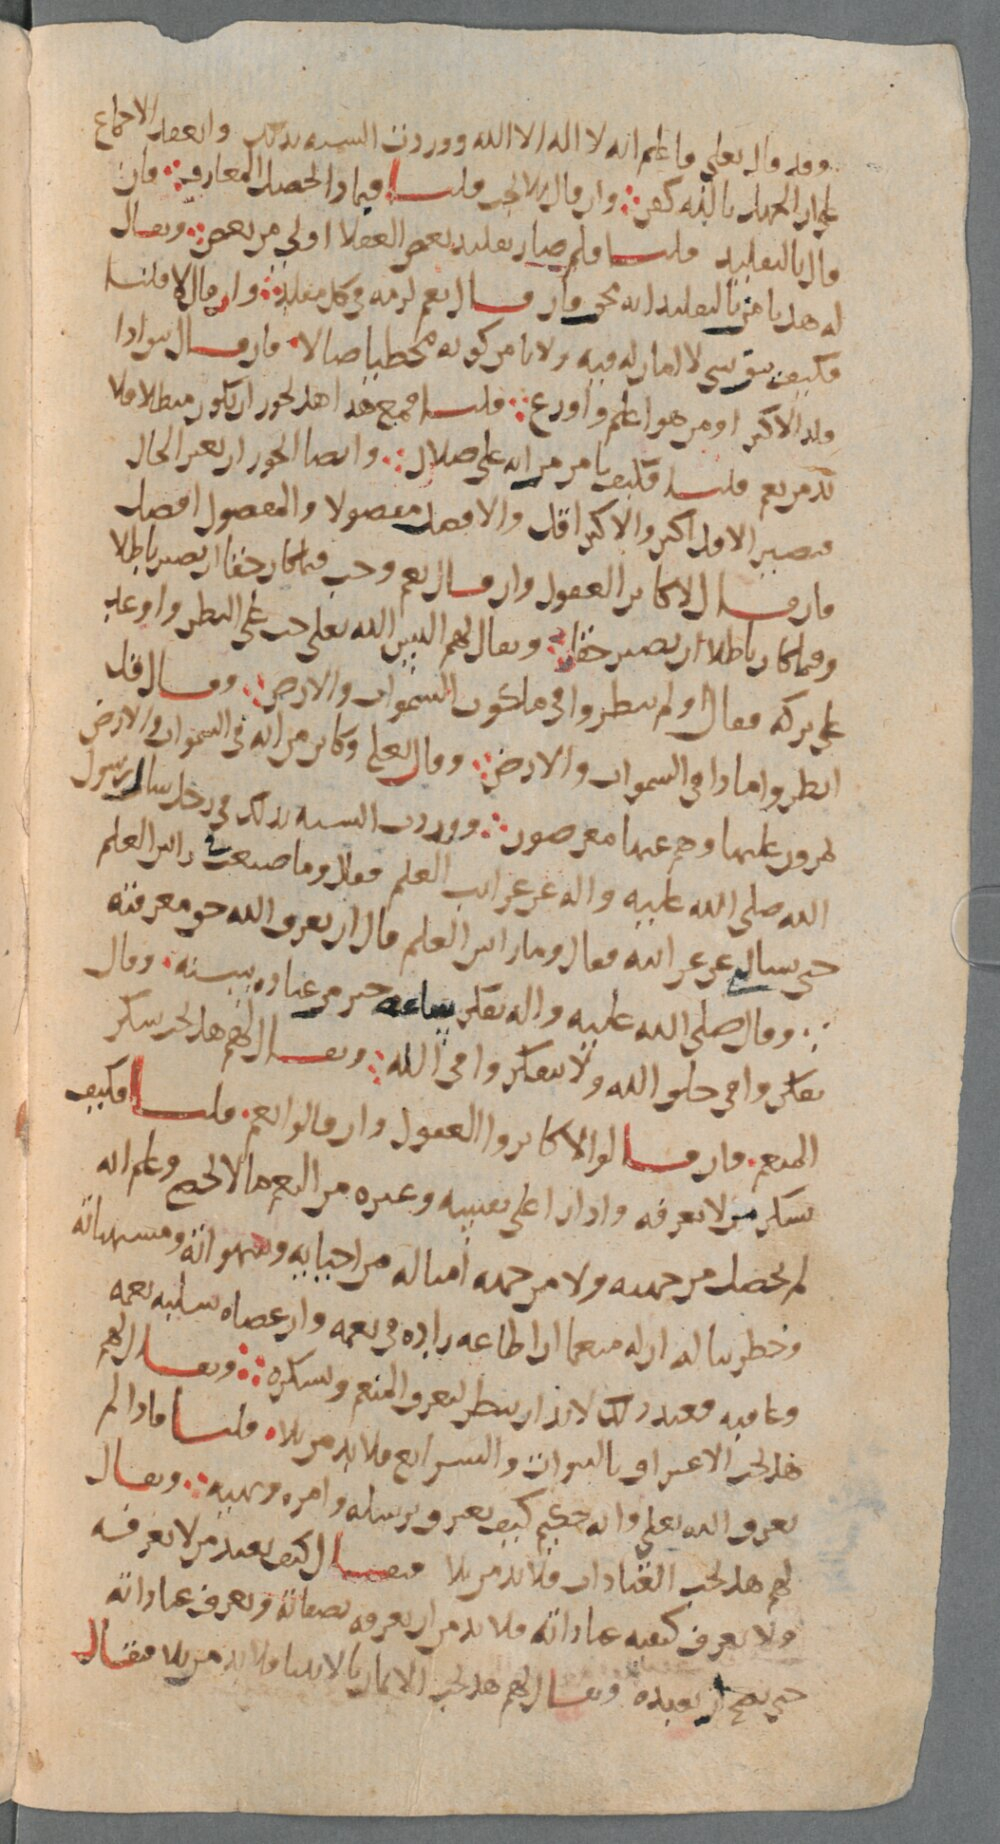 وقد قال تعلى فاعلم انه لا اله الا الله ووردت السنه بذلك وانعقد الاجماع
على ان الجهل بالله كفر وان قال بلا يجب قلنا فبماذا تحصل المعارف فان
قال بالتقليد قلنا ولم صار تقليد بعض العقلا اولى من بعض ويقال
له هل يامن بالتقليد انه محق فان قال نعم لزمه في كل مقلد وان قال لا قلنا
فكيف يثق بشي لا امان له فيه ولا يامن كونه مخطيا ضالا فان قال بقوا اذا
قلد الاكثر او من هو اعلم واورع قلنا فجميع هذا هل يجوز ان يكون مبطلا فلا
بد من نعم قلنا فكيف يامن من انه على ضلال وايضا الجوز ان يتغير الحال
فيصير الاقل اكثر والاكثر اقل والافضل مفضولا والمفضول افضل
فان قال لا كابر العقول وان قال نعم وجب فيما كان حقا ان يصير باطلا
وفيما كان باطلا ان يصير حقا ويقال لهم اليس الله تعلى حث على النظر واوعد
على تركه فقال اولم ينظروا في ملكوت السموات والارض وقال قل
انظروا ماذا في السموات والارض وقال تعلى وكاين من ايه في السموات والارض
يمرون عليها وهم عنها معرضون ووردت السنه بذلك في رجل سال رسول
الله صلى الله عليه واله عن غرائب العلم فقال وما صنعت في راس العلم
حتى تسال عن غرائبه فقال وما راس العلم قال ان تعرف الله حق معرفته
وقال صلى الله عليه واله تفكر ساعه خير من عباده سنه وقال
تفكروا في خلق الله ولا تتفكروا في الله ويقال لهم هل يجب شكر
المنعم فان قالوا لا كابروا العقول وان قالوا نعم قلنا فكيف
يشكر من لا يعرفه واذا راا على نفسه وغيره من النعم ما لا يحصى وعلم انه
لم يحصل من جهته ولا من جهه امثاله من احيائه وشهواته ومشتهياته
وخطر بباله ان له منعما ان اطاعه زاده في نعمه وان عصاه سلبه نعمه
وعاقبه فعند ذلك لا بد ان ينظر ليعرف المنعم ويشكره ويقال لهم
هل يجب الاعتراف بالنبوات والشرائع فلا بد من بلا قلنا فاذا لم
يعرف الله تعلى وانه حكيم كيف يعترف برسله وامره ونهيه ويقال
لهم هل تجب العبادات فلا بد من بلا فيقال كيف يعبد من لا يعرفه
ولا يعرف كيفيه عباداته فلا بد من ان يعرفه بصفاته ويعرف عباداته
حتى يصح ان يعبده ويقال لهم هل يجب الايمان بالانبيا فلا بد من بلا فيقال